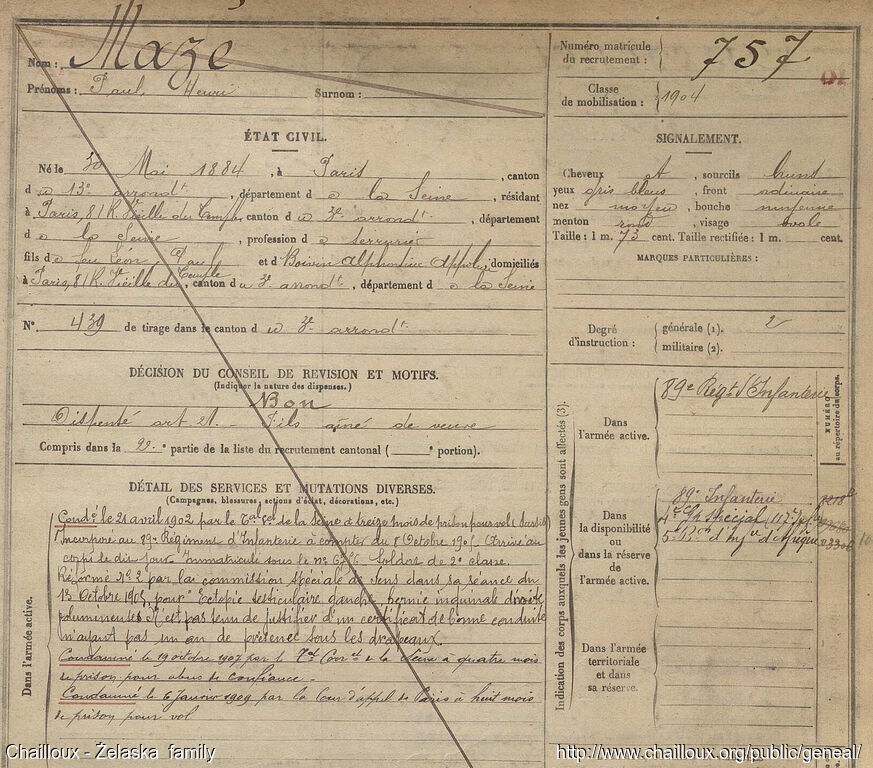 Nom : Maze
Prénoms : Paul Henri Surnom :
Numéro matricule du recrutement : 757
Classe de mobilisation : 1904
ÉTAT CIVIL.
Né le 30 Mai 1884, à Paris, canton
d u 13e arrondt, département d e la Seine, résidant
à Paris, 81 R. Vieille du Temple, canton d u 3e arrondt, département
d e la Seine, profession d e serrurier
fils d e feu Léon Paul et d e Boivin Alphonsine domiciliés
à Paris, 81 R. Vle du Temple, canton d u 3e arrondt, département d e la Seine
N° 439 de tirage dans le canton d u 3e arrondt
DÉCISION DU CONSEIL DE REVISION ET MOTIFS.
(Indiquer la nature des dispenses.)
Bon
Dispensé art 21. Fils aîné de veuve
Compris dans la 2e partie de la liste du recrutement cantonal ( portion).
DÉTAIL DES SERVICES ET MUTATIONS DIVERSES.
(Campagnes, blessures, actions d'éclat, décorations, etc.)
Dans l'armée active.
Condé le 21 avril 1902 par le de la Seine à treize mois de prison pour vol
Incorporé au 89e Régiment d'Infanterie à compter du 8 Octobre 1905 Arrivé au
corps le dit jour Immatriculé sous le no Soldat de 2e classe.
Réformé No 2 par la commission spéciale de Sens dans sa séance du
13 Octobre 1905, pour "Ectopie testiculaire gauche, hernie inguinale droite
N'est pas tenu de justifier d'un certificat de bonne conduite
n'ayant pas un an de présence sous les drapeaux.
Condamné le 19 octobre 1907 par le Tal Correct de la Seine à quatre mois
de prison pour abus de confiance -
Condamné le 6 Janvier 1909 par la Cour d'appel de Paris à huit mois
de prison pour vol
SIGNALEMENT.
Cheveux et, sourcils bruns
yeux gris bleus, front ordinaire
nez moyen, bouche moyenne
menton rond, visage ovale
Taille : 1 m. 73 cent. Taille rectifiée : 1 m. cent.
MARQUES PARTICULIÈRES :
Degré d'instruction : générale (1). 2
militaire (2).
Indication des corps auxquels les jeunes gens sont affectés (3).
NUMÉRO au répertoire du corps.
Dans l'armée active.
89e Régt d'Infanterie
Dans la disponibilité ou dans la réserve de l'armée active.
89e Infanterie
4e Gr. Spécial
5e d'Inf. d'Afrique
Dans l'armée territoriale et dans sa réserve.
Chailloux - Żelaska family
http://www.chailloux.org/public/geneal/